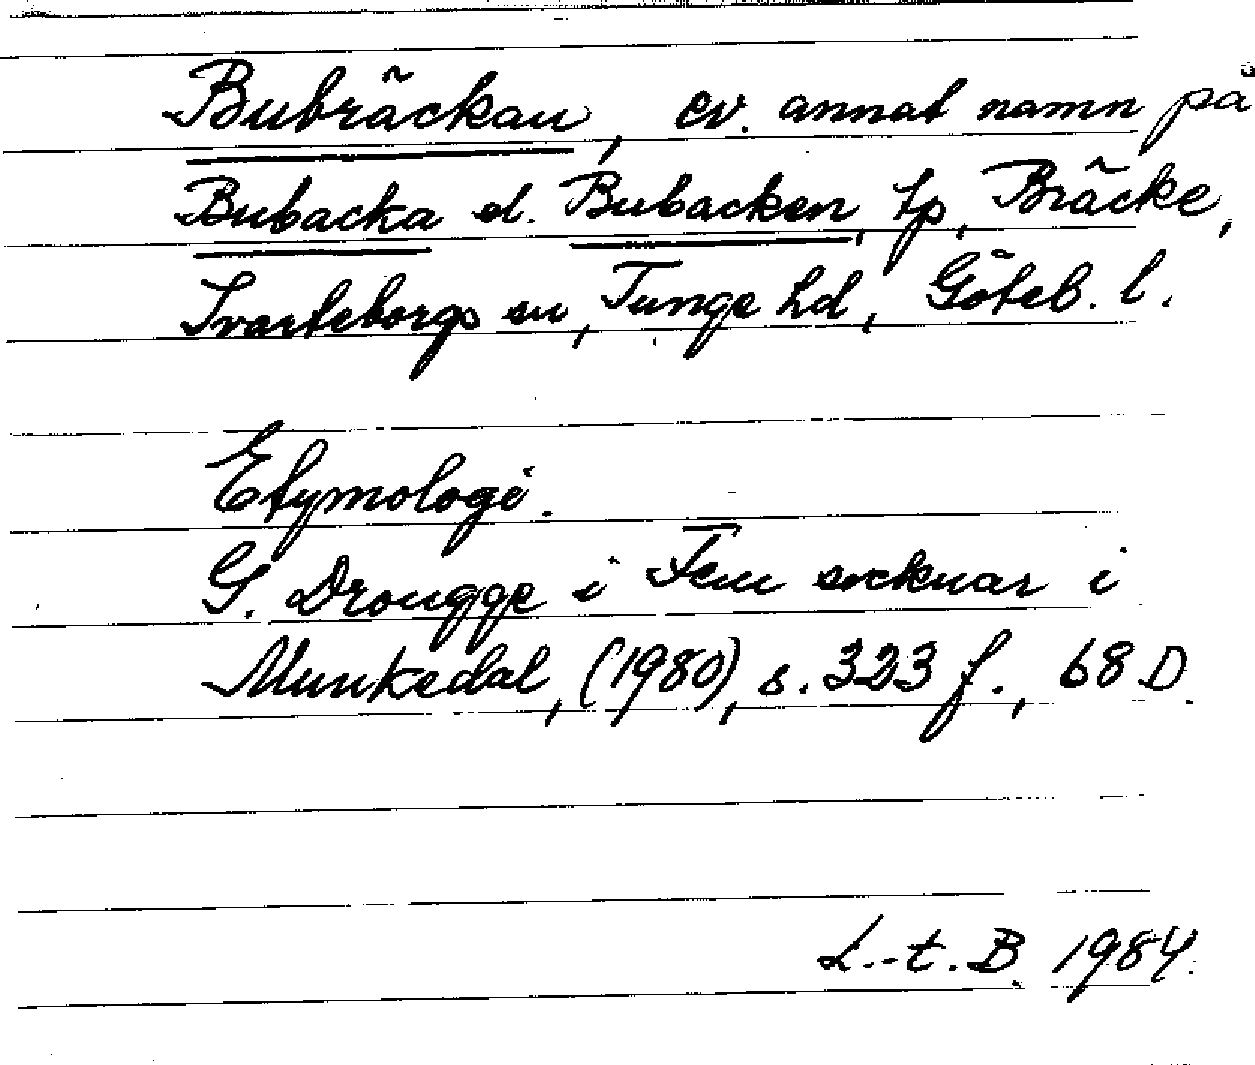 Bubräckan, ev. annat namn på
Bubacka el. Bubacken, tp, Bräcke,
Svarteborgs sn, Tunge hd, Göteb. l.
Etymologi.
G. Drougge i Fem socknar i
Munkedal, (1980), s. 323 f., 68 D.
L.-t. B. 1984.